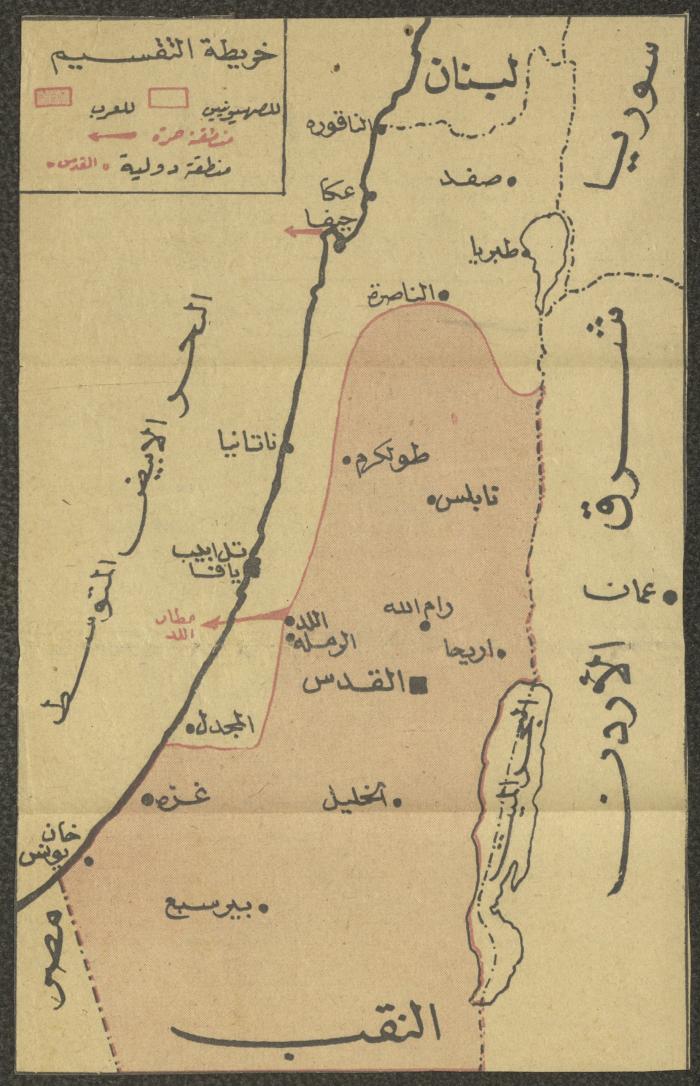 خريطة التقسيم
للصهيونيين للعرب
منطقة حرة
منطقة دولية • القدس •
لبنان
سوريا
الناقوره
صفد
عكا
حيفا
طبريا
الناصرة
البحر الابيض المتوسط
شرق الأردن
ناتانيا
طولكرم
نابلس
تل ابيب
يافا
عمان
رام الله
مطار
اللد
اللد
الرمله
اريحا
القدس
المجدل
البحر الميت
غزه
الخليل
خان
يونس
بير سبع
مصر
النقب